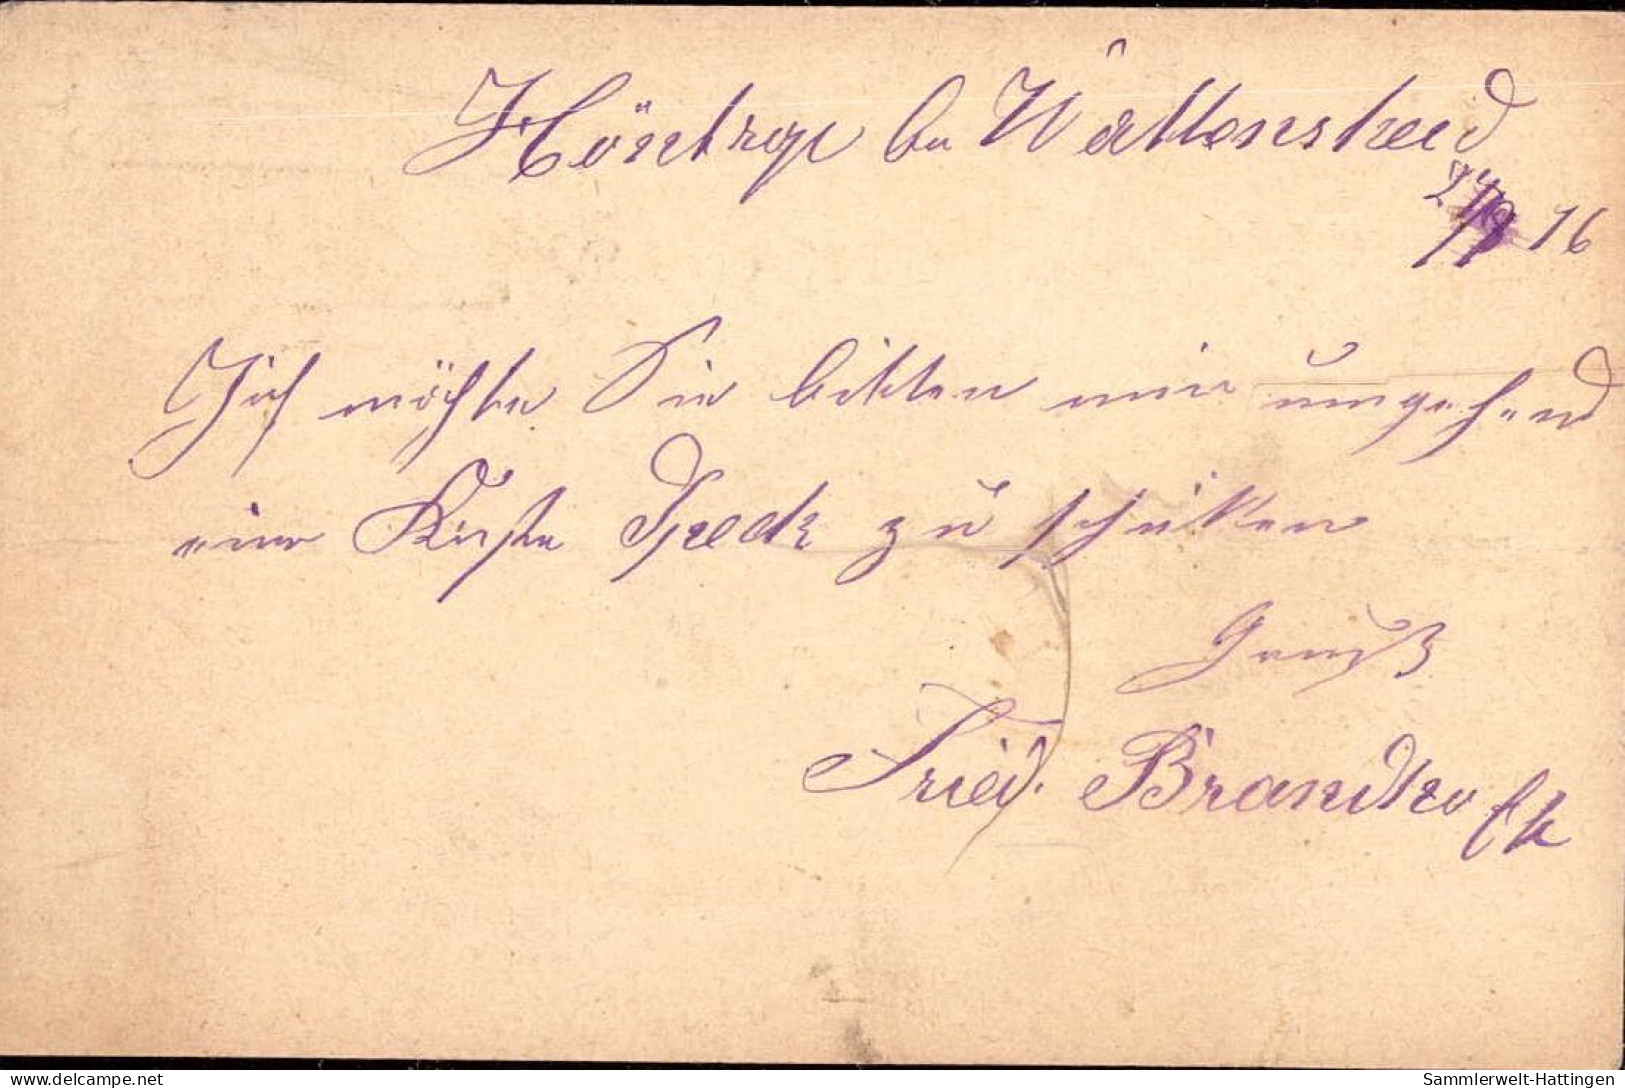 Höntrop bei Wattenscheid
16
Ich möchte Sie bitten mir umgehend
eine Kiste Speck zu schicken
Gruß
Fried. Brandhoff
delcampe.net
Sammlerwelt-Hattingen